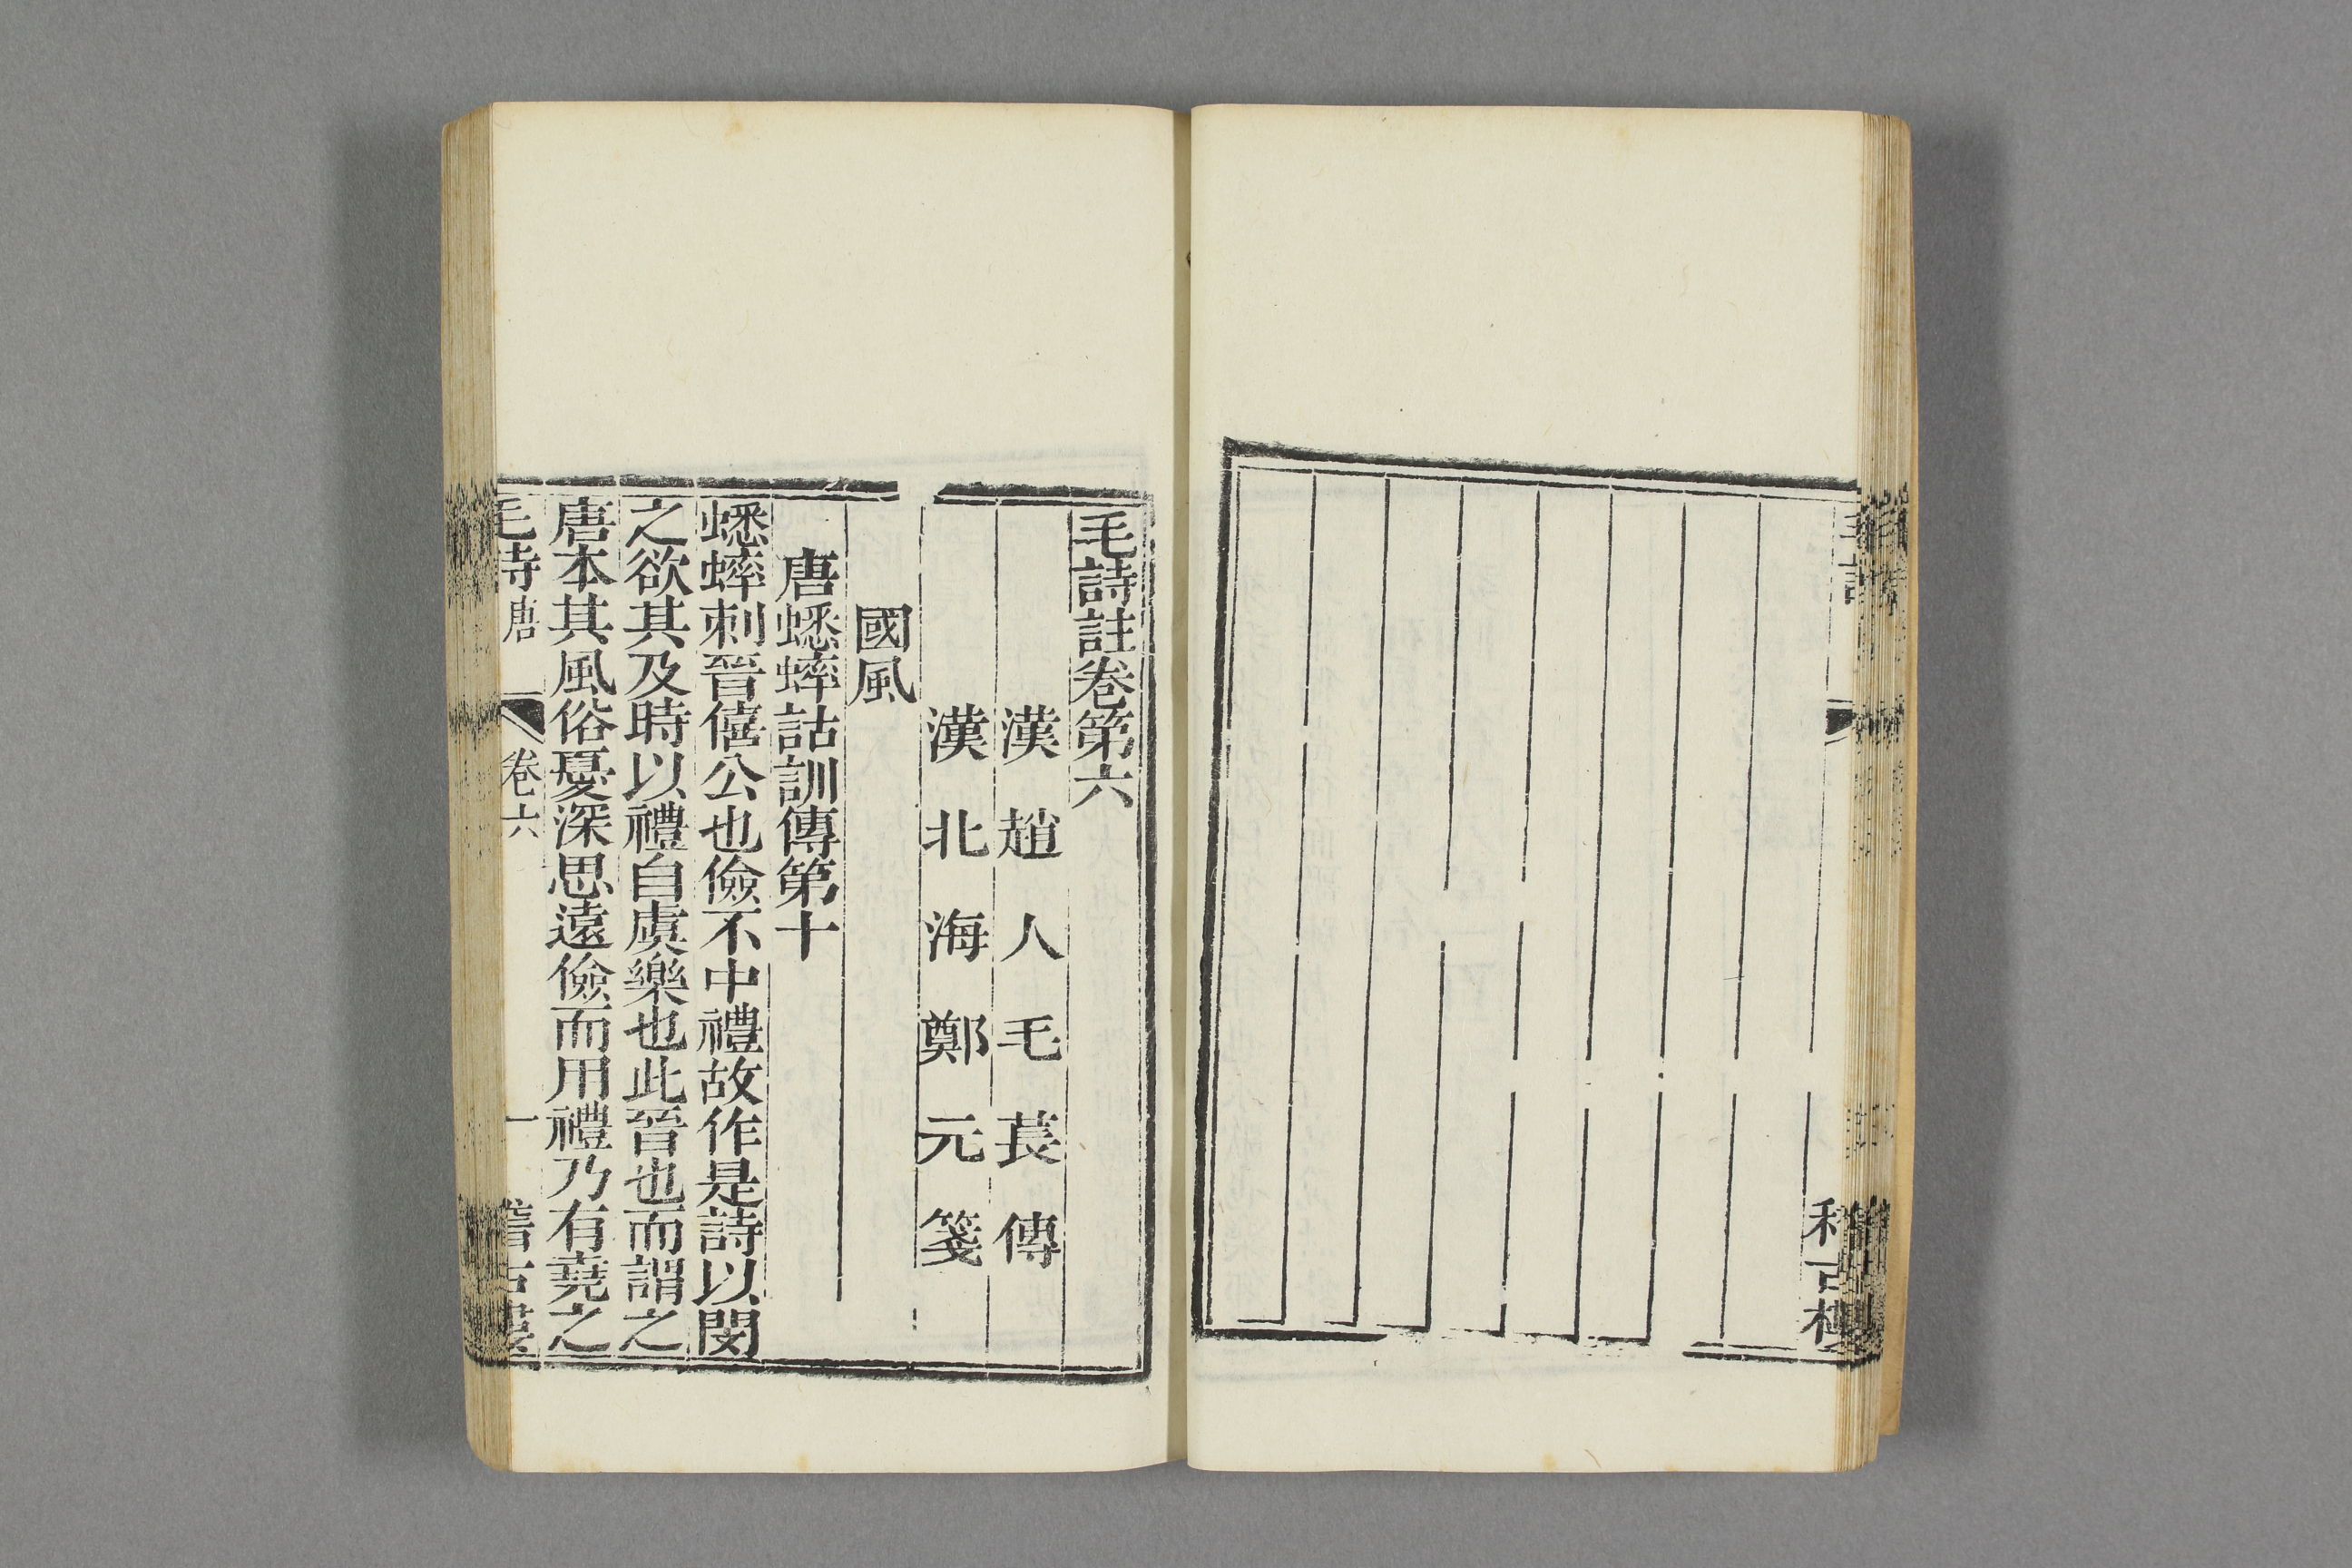 毛詩註卷第六
漢趙人毛萇傳
漢北海鄭元箋
國風
唐蟋蟀詁訓傳第十
蟋蟀刺晉僖公也儉不中禮故作是詩以閔
之欲其及時以禮自虞樂也此晉也而謂之
唐本其風俗憂深思遠儉而用禮乃有堯之
毛詩唐 卷六 一 稽古樓